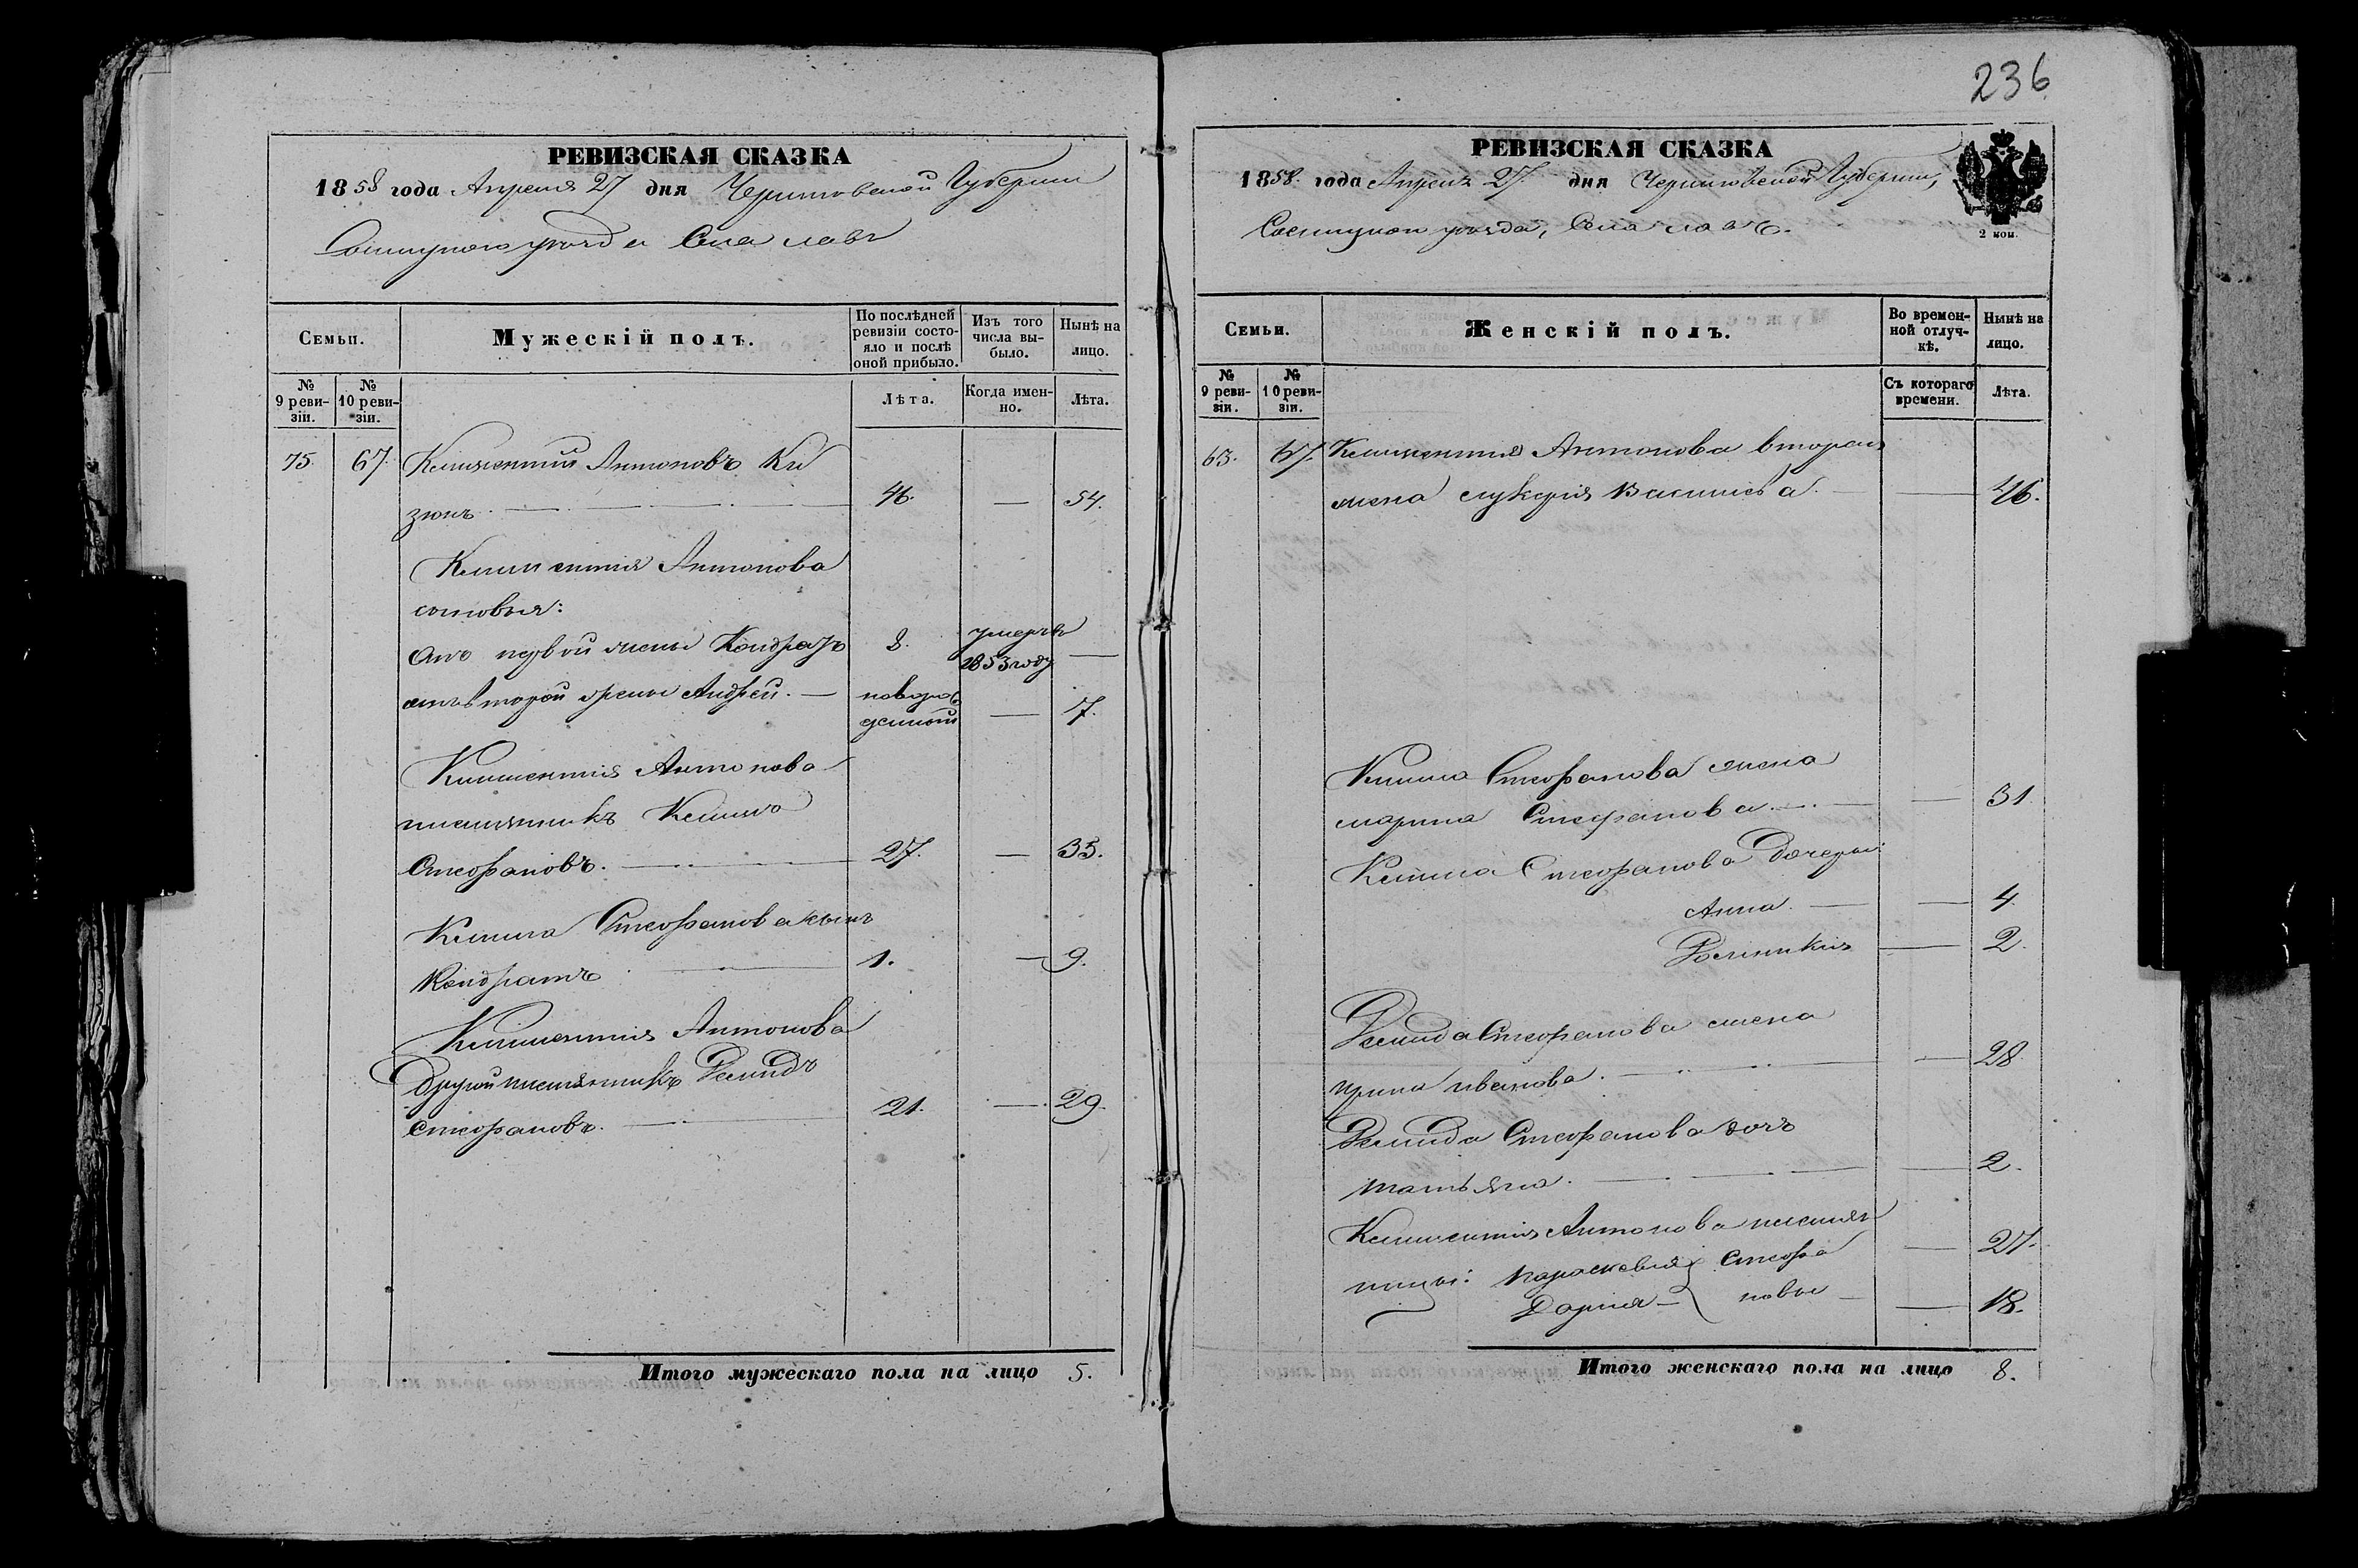 236
РЕВИЗСКАЯ СКАЗКА
1858 года Апреля 27 дня Черниговской Губернии
Сосницкого уезда Села Лавъ
Семьи.
Мужескій полъ.
По послѣдней ревизіи состояло и послѣ оной прибыло.
Изъ того числа выбыло.
Нынѣ на лицо.
№ 9 ревизіи.
№ 10 ревизіи.
Лѣта.
Когда именно.
Лѣта.
75. 67. Климентий Антоновъ Ки
зюнъ. 46. — 54.
Климентия Антонова
сыновья:
Отъ первой жены Кондратъ 8. умеръ въ 1853 году —
отъ второй жены Андрей. — новорожденный — 7.
Климентия Антонова
племянникъ Климъ
Стефановъ. 27. — 35.
Клима Стефанова сынъ
Кондратъ 1. — 9.
Климентия Антонова
другой племянникъ Демидъ
Стефановъ. 21. — 29.
Итого мужескаго пола на лицо 5.
РЕВИЗСКАЯ СКАЗКА
1858. года Апреля 27. дня Черниговской Губернии,
Сосницкого уезда, Села Лавъ.
2 коп.
Семьи.
Женскій полъ.
Во временной отлучкѣ.
Нынѣ на лицо.
№ 9 ревизіи.
№ 10 ревизіи.
Съ котораго времени.
Лѣта.
63. 67. Климентия Антонова вторая
жена Лукерия Васильева. — 46.
Клима Стефанова жена
Марина Стефанова. — 31.
Клима Стефанова дочери:
Анна. — 4.
— 2.
Демида Стефанова жена
Ирина Иванова. — 28
Демида Стефанова дочь
Татьяна. — 2.
Климентия Антонова племян
ницы: Параскевия } Стефа — 27.
Дария — } новы — 18.
Итого женскаго пола на лицо 8.